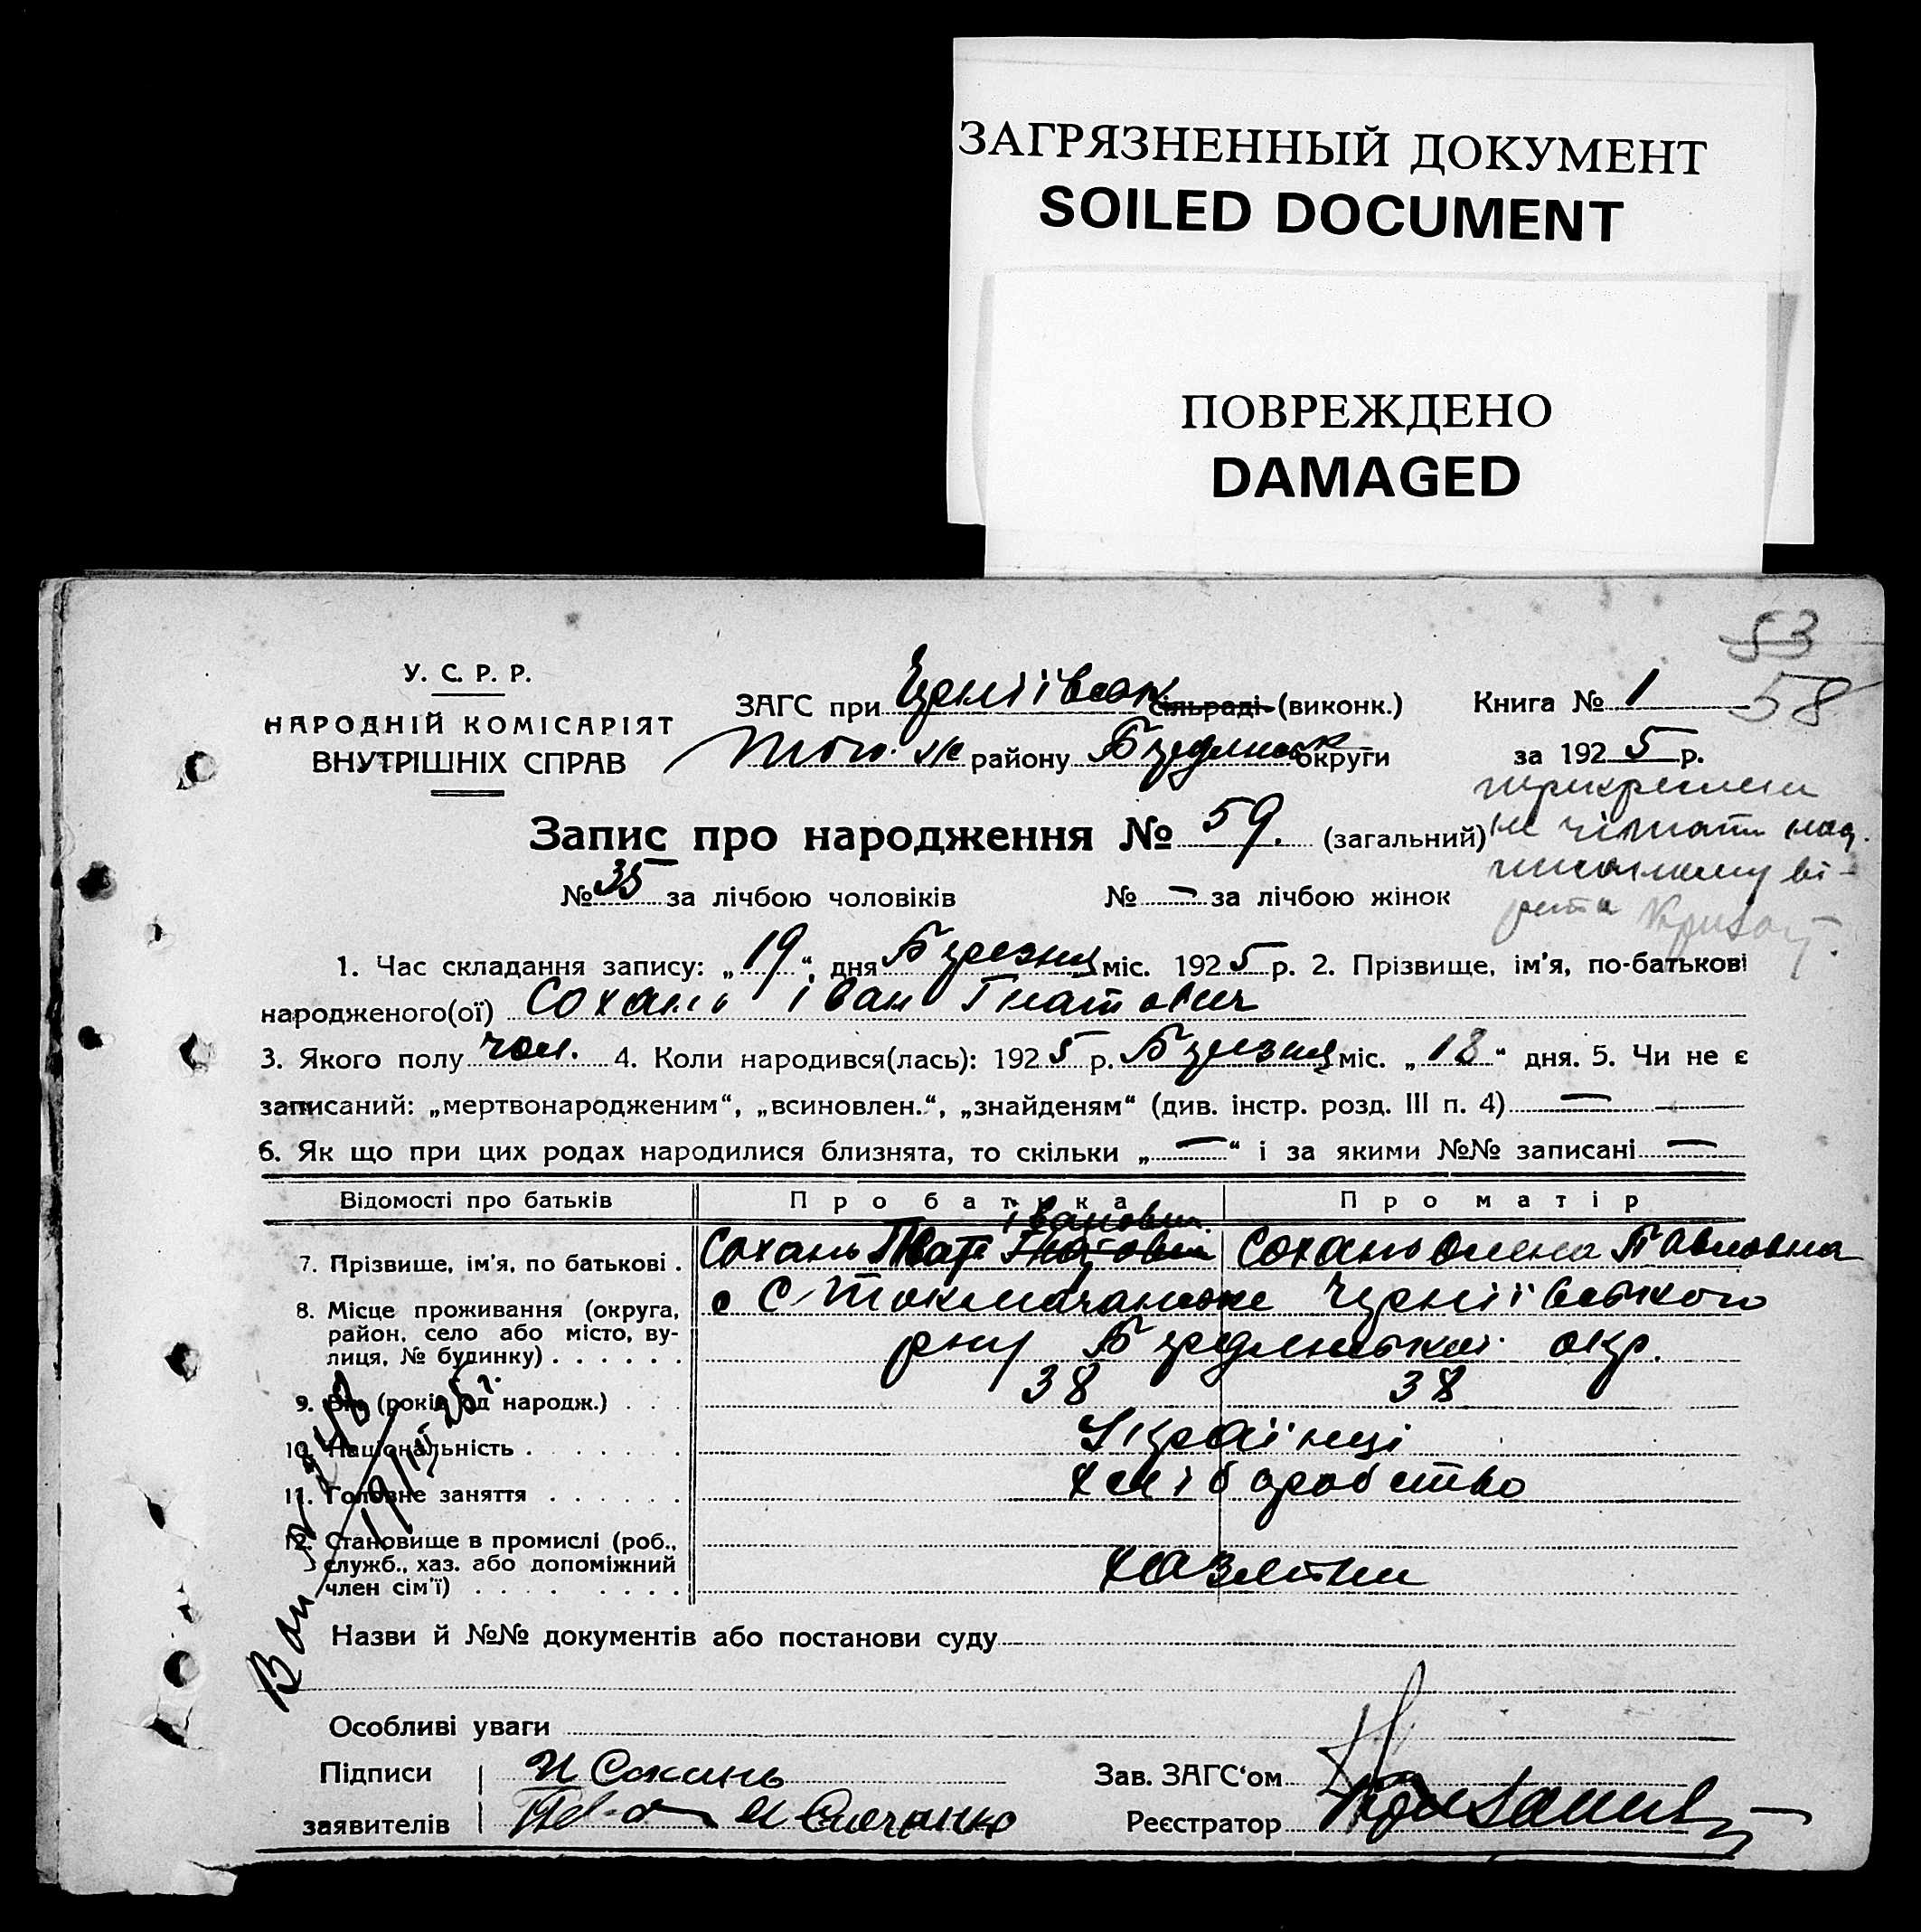 ЗАГРЯЗНЕННЫЙ ДОКУМЕНТ
SOILED DOCUMENT
ПОВРЕЖДЕНО
DAMAGED
53
58
У. С. Р. Р.
НАРОДНІЙ КОМІСАРІЯТ
ВНУТРІШНІХ СПРАВ
ЗАГС при сільраді (виконк.)
району округи
Книга № 1
за 1925 р.
Запис про народження № 59. (загальний)
№ 35 за лічбою чоловіків № — за лічбою жінок
1. Час складання запису: „19“ дня Березня міс. 1925 р. 2. Прізвище, ім'я, по-батькові
народженого(ої) Сохань Іван Гнатович
3. Якого полу чол. 4. Коли народився(лась): 1925 р. Березня міс. „18“ дня. 5. Чи не є
записаний: „мертвонародженим“, „всиновлен.“, „знайденям“ (див. інстр. розд. III п. 4) —
6. Як що при цих родах народилися близнята, то скільки „—“ і за якими №№ записані —
Відомості про батьків Про батька Про матір
Іванович
7. Прізвище, ім'я, по батькові . Сохань Гнат Гнатович Сохань Олена Павловна
8. Місце проживання (округа, с. Токмачанське Черніївського
район, село або місто, ву-
лиця, № будинку) . . . . . . рну Бердянської окр.
9. Вік (років од народж.) . . . 38 38
10. Національність . . . . . . Українці
11. Головне заняття . . . . . . хліборобство
12. Становище в промислі (роб.,
служб., хаз. або допоміжний
член сім'ї) . . . . . . . . .
Назви й №№ документів або постанови суду
Особливі уваги
Підписи И Сохань Зав. ЗАГС'ом
заявителів Реєстратор